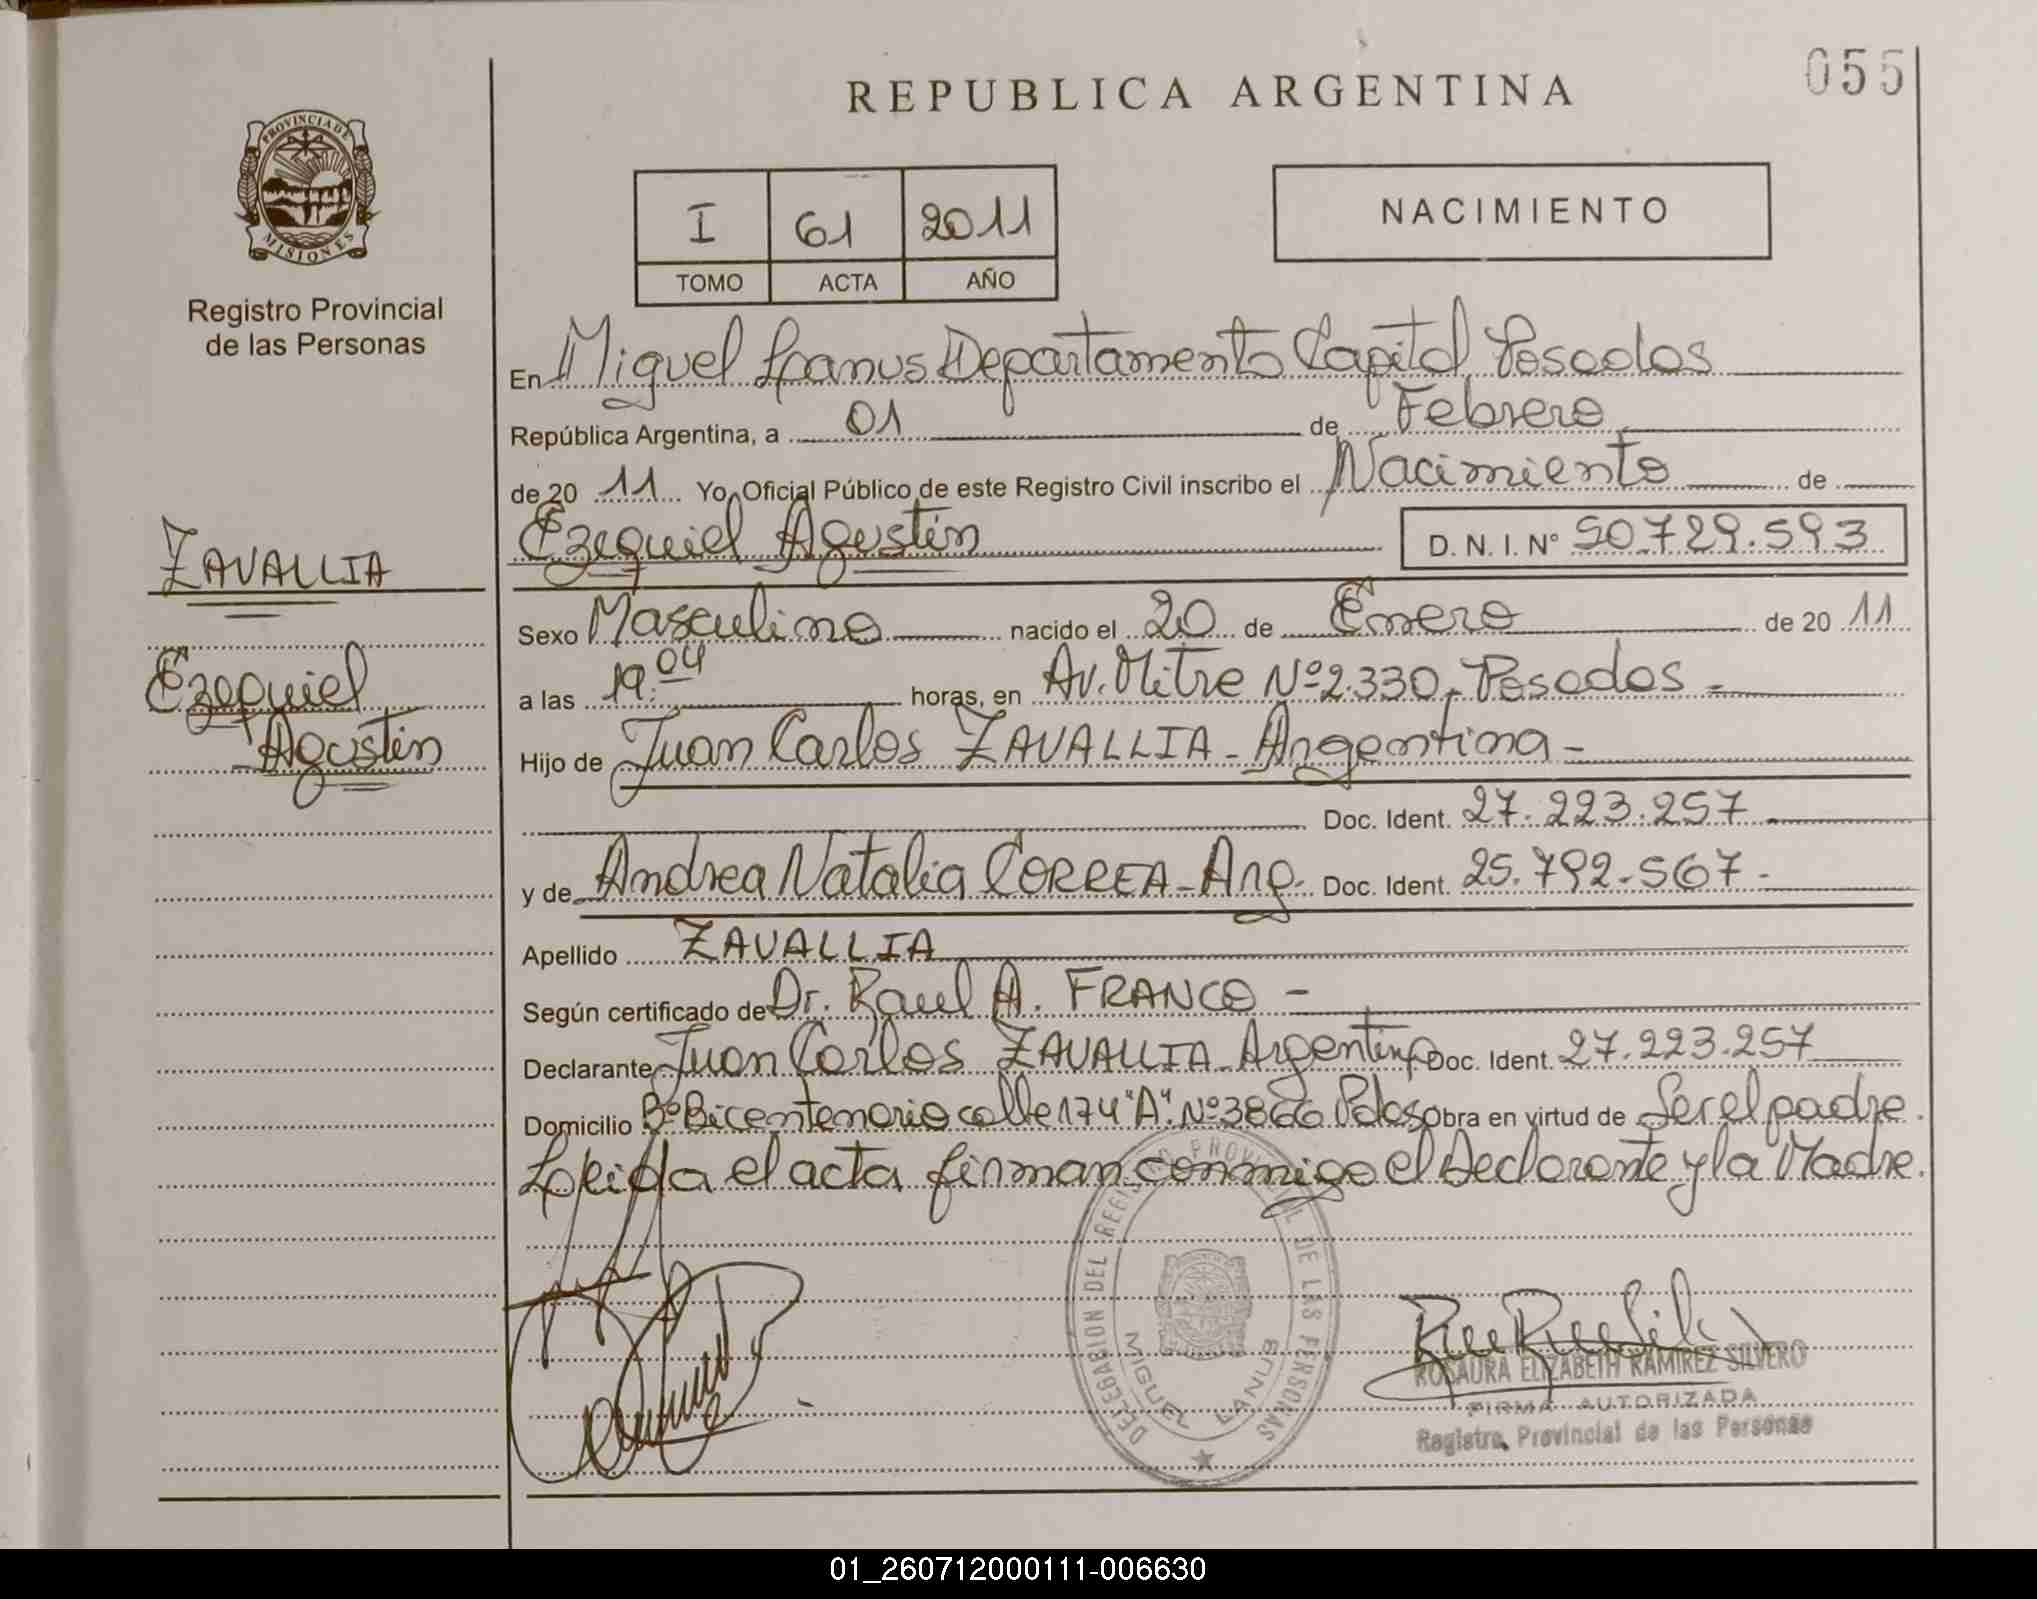 055
REPUBLICA ARGENTINA
PROVINCIA DE MISIONES
Registro Provincial
de las Personas
I 61 2011
TOMO ACTA AÑO
NACIMIENTO
En Miguel Lanus Departamento Capital Posadas
República Argentina, a 01 de Febrero
de 20 11 Yo, Oficial Público de este Registro Civil inscribo el Nacimiento de
Ezequiel Agustín D. N. I. Nº 50.729.593
ZAVALLIA
Ezequiel
Agustín
Sexo Masculino nacido el 20 de Enero de 20 11
a las 19:04 horas, en Av. Mitre Nº 2.330, Posadas -
Hijo de Juan Carlos ZAVALLIA - Argentina -
Doc. Ident. 27.223.257
y de Andrea Natalia CORREA - Arg. Doc. Ident. 25.792.567 -
Apellido ZAVALLIA
Según certificado de Dr. Raul A. FRANCO -
Declarante Juan Carlos ZAVALLIA - Argentina Doc. Ident. 27.223.257
Domicilio Bº Bicentenario calle 174 "A" Nº 3866 Pdas. Obra en virtud de Ser el padre.
Leida el acta firman conmigo el Declarante y la Madre.
DELEGACION DEL REGISTRO PROVINCIAL DE LAS PERSONAS
MIGUEL LANUS
ROSAURA ELIZABETH RAMIREZ SILVERO
FIRMA AUTORIZADA
Registro Provincial de las Personas
01_260712000111-006630